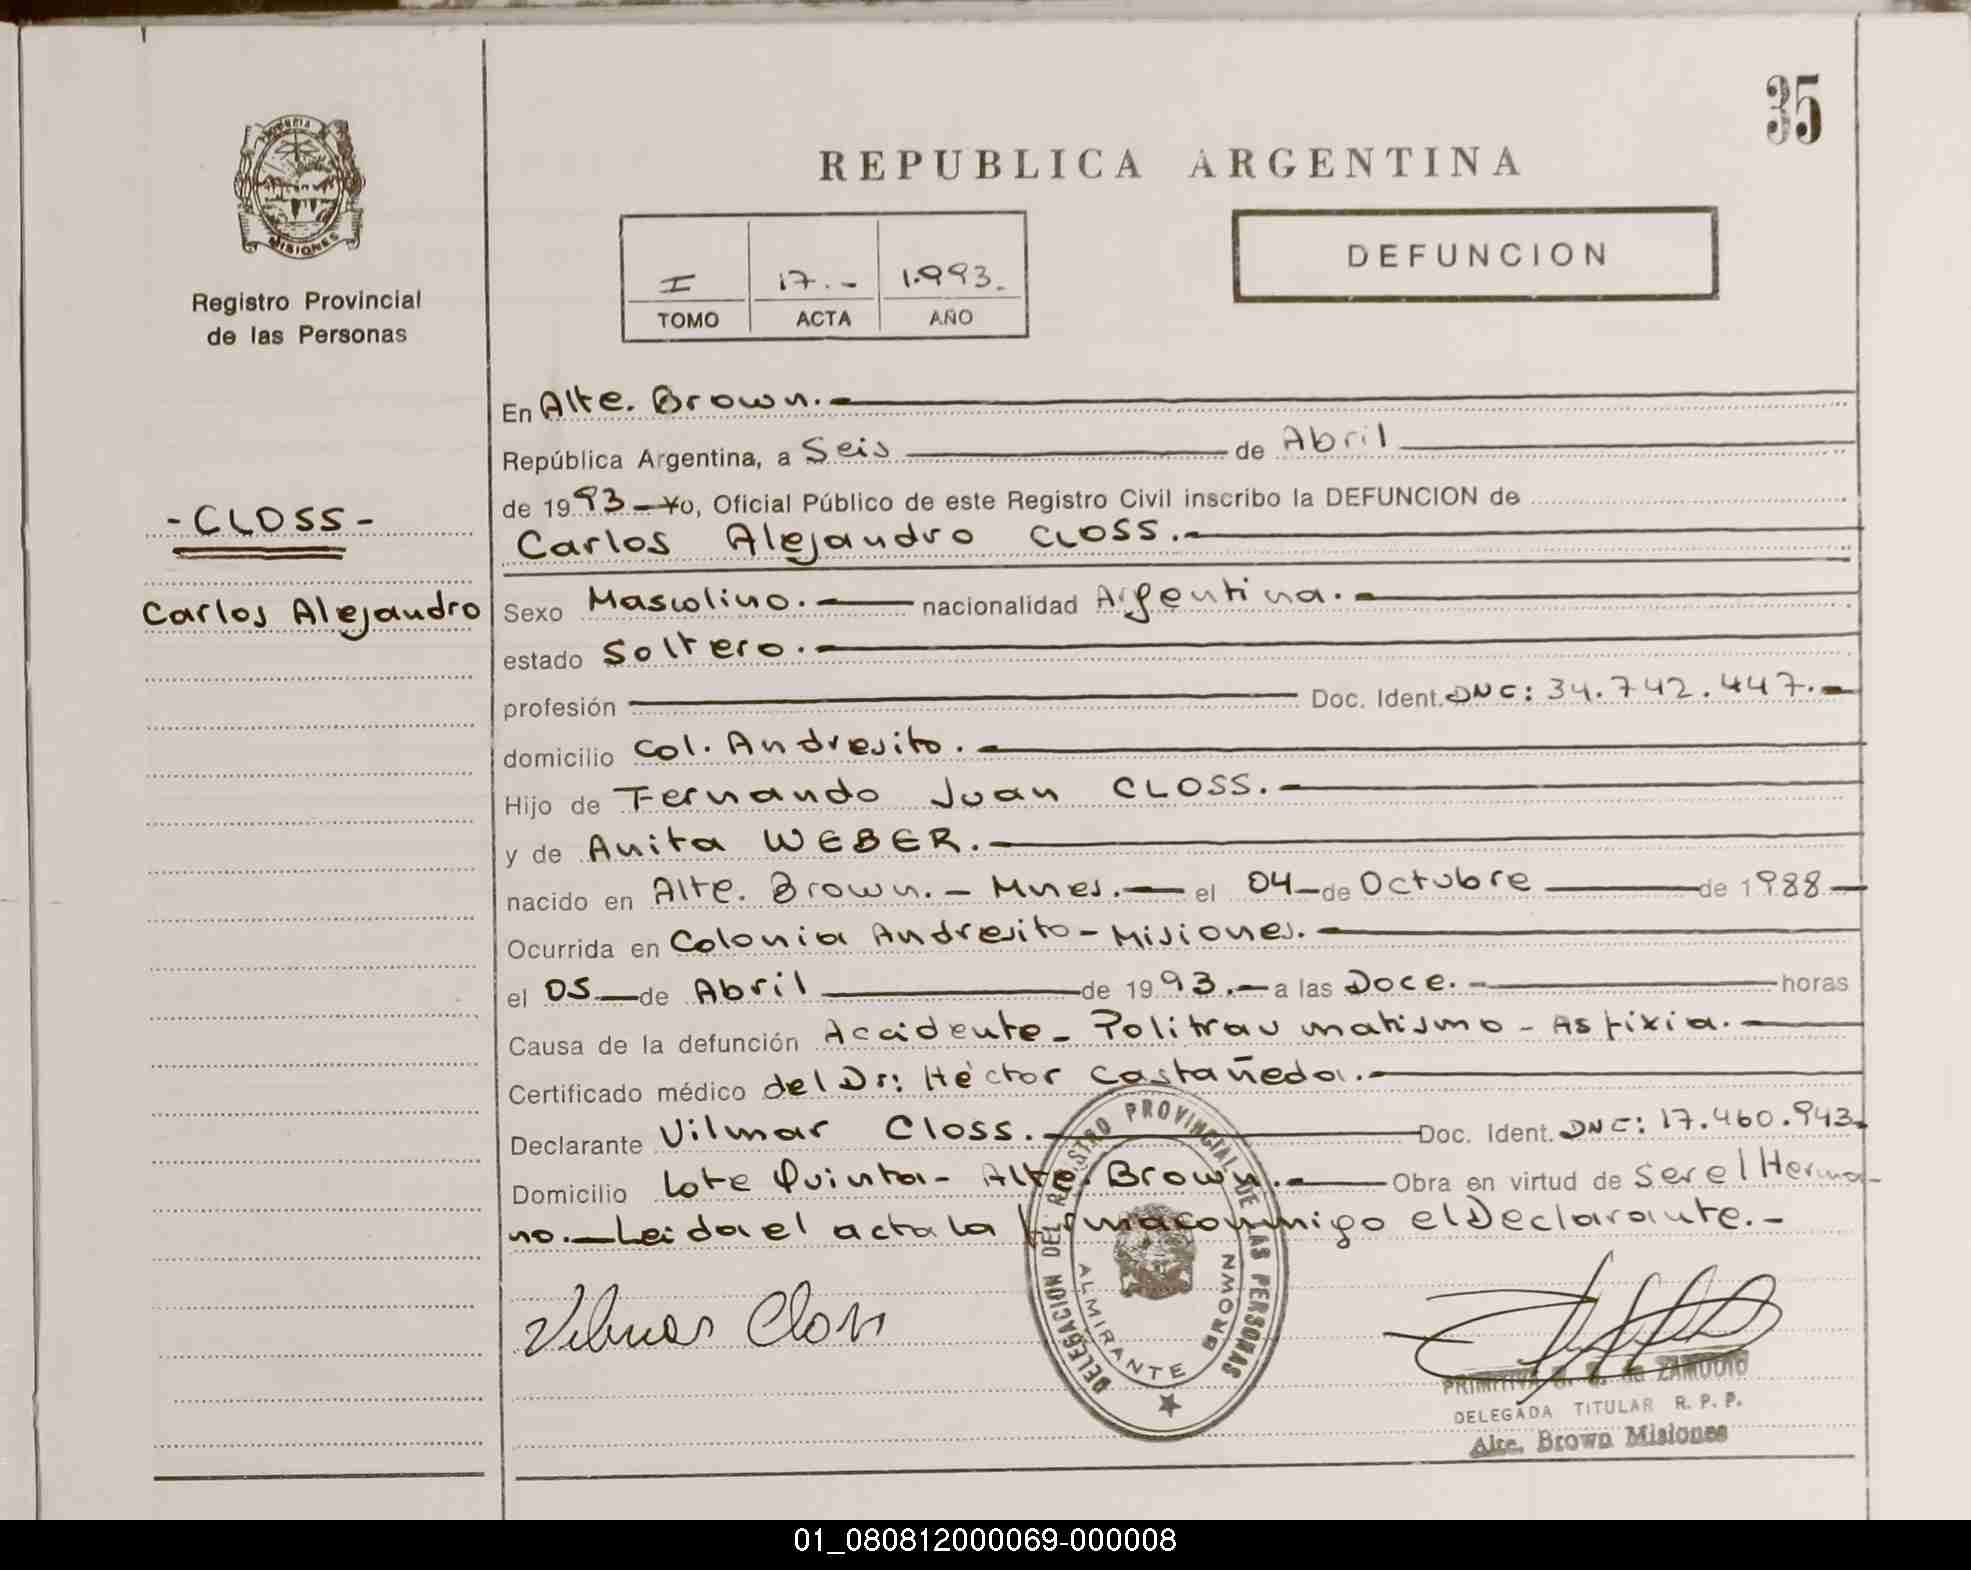 35
PROVINCIA
MISIONES
Registro Provincial
de las Personas
REPUBLICA ARGENTINA
I 17.- 1.993.
TOMO ACTA AÑO
DEFUNCION
-CLOSS-
Carlos Alejandro
En Alte. Brown.-
República Argentina, a Seis de Abril
de 1993 - Yo, Oficial Público de este Registro Civil inscribo la DEFUNCION de
Carlos Alejandro CLOSS.-
Sexo Masculino.- nacionalidad Argentina.-
estado Soltero.-
profesión Doc. Ident. DNC: 34.742.447.-
domicilio Col. Andresito.-
Hijo de Fernando Juan CLOSS.-
y de Anita WEBER.-
nacido en Alte. Brown.- Mnes.- el 04 - de Octubre de 1988 -
Ocurrida en Colonia Andresito - Misiones.-
el 05 - de Abril de 1993.- a las Doce.- horas
Causa de la defunción Accidente - Politraumatismo - Asfixia.-
Certificado médico del Dr: Héctor Castañeda.-
Declarante Vilmar Closs.- Doc. Ident. DNC: 17.460.943-
Domicilio Lote Quinta - Alte. Brown.- Obra en virtud de Ser el Herma-
no.- Leida el acta la firma conmigo el Declarante.-
Vilmar Closs
DELEGACION DEL REGISTRO PROVINCIAL DE LAS PERSONAS
ALMIRANTE BROWN
PRIMITIVA de ZAMUDIO
DELEGADA TITULAR R. P. P.
Alte. Brown Misiones
01_080812000069-000008